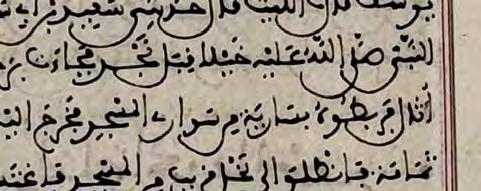 يوسف قال الليث قال حدثني سعيد بن أبي
النبي صلى الله عليه خيلا قبل نجد فجاءت بر
أثال فربطوه بسارية من سواري المسجد فخرج
ثمامة فانطلق إلى نخل قريب من المسجد فاغتس